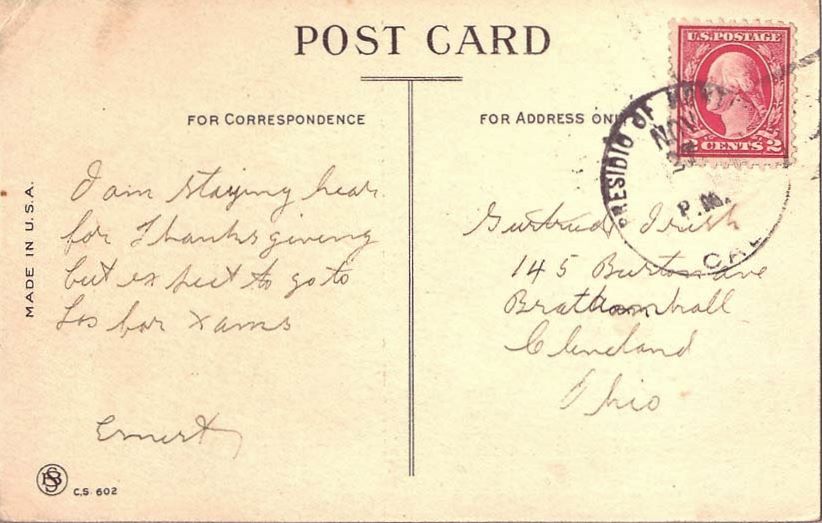 POST CARD
U.S. POSTAGE
2 CENTS 2
PRESIDIO OF
NOV
P.M.
CAL
FOR CORRESPONDENCE
FOR ADDRESS ONLY
MADE IN U.S.A.
I am staying hear
for Thanksgiving
but expect to go to
Los for Xams
Ernest
Gertrude Irish
145 Burton ave
hall
Cleveland
Ohio
C.S. 602